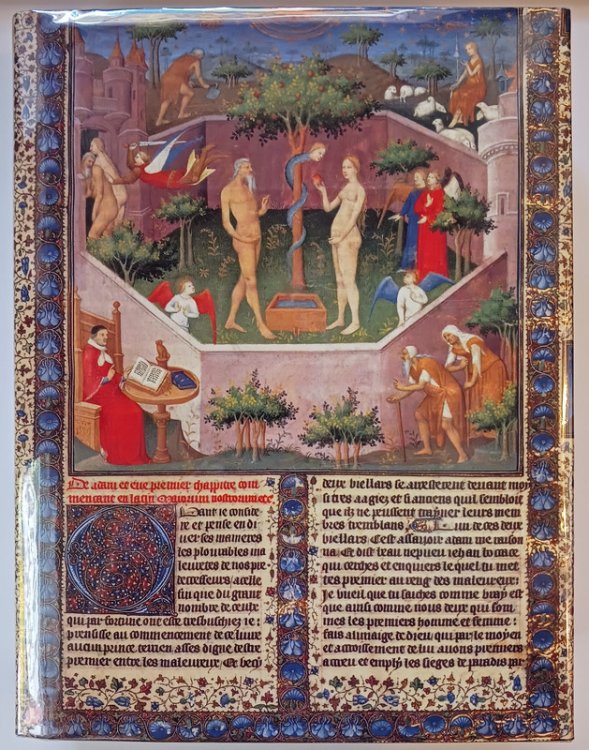 De adam et eue premier chappitre com
mencant en latin Maiorum nostrorum etc
Quant ie conside
re et pense en di
uerses manieres
les plourables ma
leuretes de nos pre
decesseurs acelle
fin que du grant
nombre de ceulx
qui par fortune ont este tresbuschiez ie
prensisse au commencement de ce liure
aucun prince terrien asses digne destre
premier entre les maleureux, Et vecy
deux viellars se aresterent deuant moy
si tres aagiez et si anciens quil sembloit
que ilz ne peussent trayner leurs mem
bres tremblans. Lun de ces deux
viellars Cest assauoir adam me raison
na. Et dist beau nepueu iehan bocace
qui cerches et enquiers le quel tu met
tres premier au reng des maleureux:
Je vueil que tu saiches comme vray est
que ainsi comme nous deux qui som
mes les premiers homme et femme:
fais alimaige de dieu qui par le moyen
et de lui auons premiers
acreu et emply les sieges de paradis par